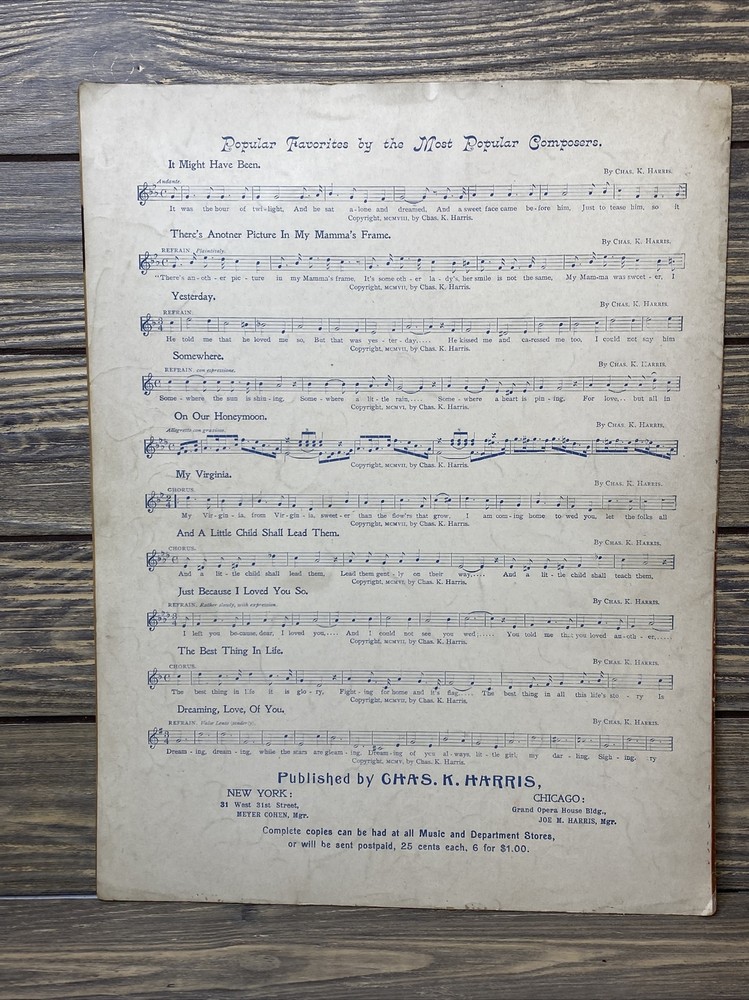 Popular Favorites by the Most Popular Composers.
It Might Have Been.
By CHAS. K. HARRIS.
Andante.
It was the hour of twi-light, And he sat a-lone and dreamed, And a sweet face came be-fore him, Just to tease him, so it
Copyright, MCMVIII, by Chas. K. Harris.
There's Another Picture In My Mamma's Frame.
By CHAS. K. HARRIS.
REFRAIN. Plaintively.
"There's an-oth-er pic-ture in my Mamma's frame, It's some oth-er la-dy's, her smile is not the same, My Mam-ma was sweet-er, I
Copyright, MCMVII, by Chas. K. Harris.
Yesterday.
By CHAS. K. HARRIS.
REFRAIN.
He told me that he loved me so, But that was yes-ter-day,.... He kissed me and ca-ressed me too, I could not say him
Copyright, MCMVII, by Chas. K. Harris.
Somewhere.
By CHAS. K. HARRIS.
REFRAIN. con espressione.
Some-where the sun is shin-ing, Some-where a lit-tle rain,.... Some-where a heart is pin-ing, For love,.. but all in
Copyright, MCMVI, by Chas. K. Harris.
On Our Honeymoon.
By CHAS. K. HARRIS.
Allegretto con grazioso.
Copyright, MCMVII, by Chas. K. Harris.
My Virginia.
By CHAS. K. HARRIS.
CHORUS.
My Vir-gin-ia, from Vir-gin-ia, sweet-er than the flow'rs that grow, I am com-ing home to wed you, let the folks all
Copyright, MCMVII, by Chas. K. Harris.
And A Little Child Shall Lead Them.
By CHAS. K. HARRIS.
CHORUS.
And a lit-tle child shall lead them, Lead them gent-ly on their way,.... And a lit-tle child shall teach them,
Copyright, MCMVI, by Chas. K. Harris.
Just Because I Loved You So.
By CHAS. K. HARRIS.
REFRAIN. Rather slowly, with expression.
I left you be-cause, dear, I loved you,.... And I could not see you wed;.... You told me that you loved an-oth-er,....
Copyright, MCMVII, by Chas. K. Harris.
The Best Thing In Life.
By CHAS. K. HARRIS.
CHORUS.
The best thing in life it is glo-ry, Fight-ing for home and it's flag.... The best thing in all this life's sto-ry Is
Copyright, MCMVII, by Chas. K. Harris.
Dreaming, Love, Of You.
By CHAS. K. HARRIS.
REFRAIN. Valse Lento
Dream-ing, dream-ing, while the stars are gleam-ing, Dream-ing of you al-ways, lit-tle girl, my dar-ling, Sigh-ing,
Copyright, MCMV, by Chas. K. Harris.
Published by CHAS. K. HARRIS,
NEW YORK: CHICAGO:
31 West 31st Street, Grand Opera House Bldg.,
MEYER COHEN, Mgr. JOE M. HARRIS, Mgr.
Complete copies can be had at all Music and Department Stores,
or will be sent postpaid, 25 cents each, 6 for $1.00.